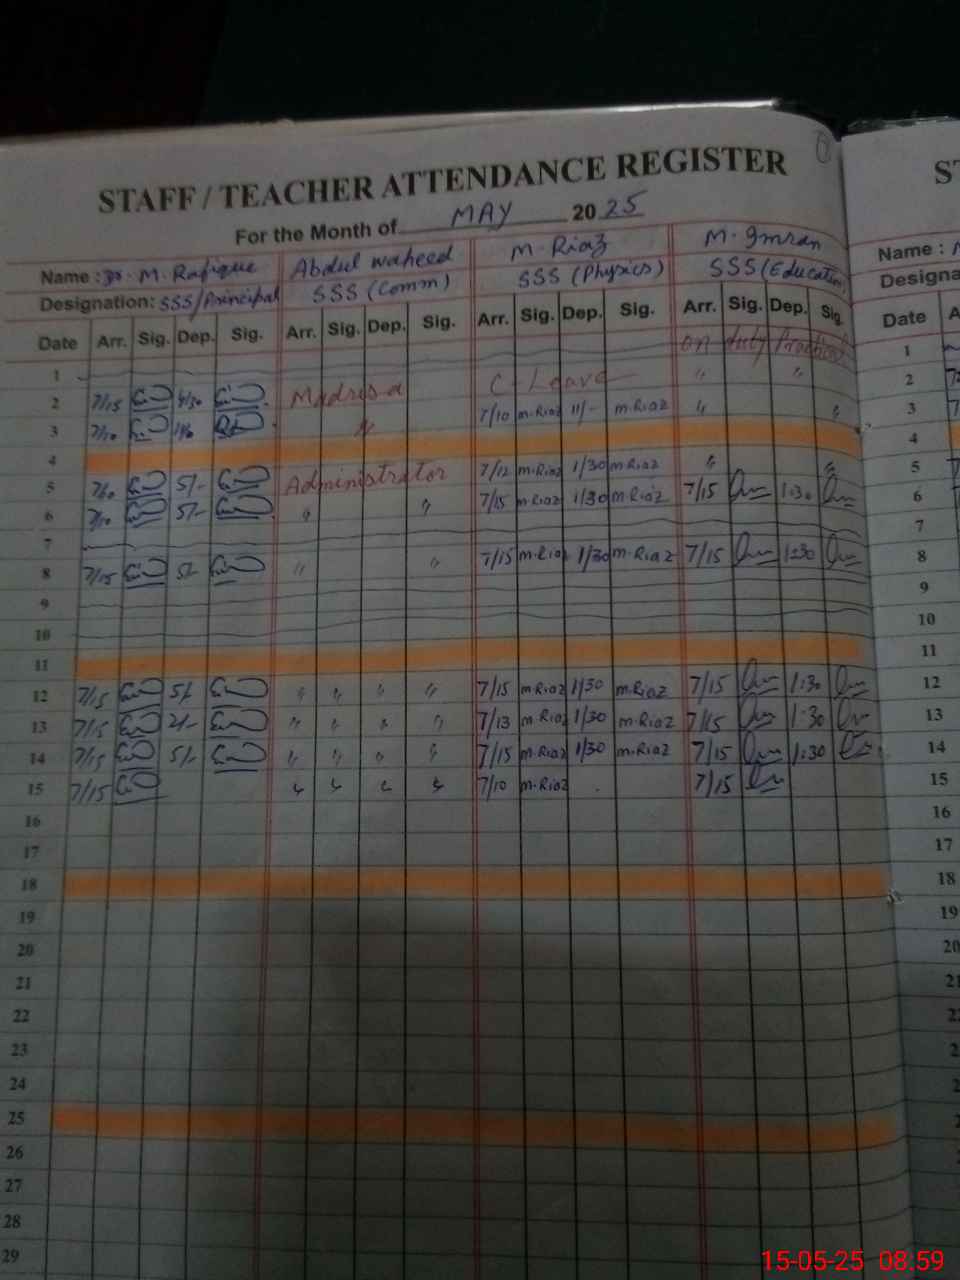 STAFF / TEACHER ATTENDANCE REGISTER
For the Month of MAY 2025
Name : Dr. M. Rafique Abdul waheed M. Riaz M. Imran
Designation: SSS/Principal SSS (Comm) SSS (Physics) SSS (Education)
Date Arr. Sig. Dep. Sig. Arr. Sig. Dep. Sig. Arr. Sig. Dep. Sig. Arr. Sig. Dep. Sig.
1 on duty Practical
2 7/15 4/30 Madrisa C-Leave " "
3 7/10 " 7/10 m.Riaz 11/- m.Riaz " "
4
5 5/- Administrator 7/12 m.Riaz 1/30 m.Riaz " "
6 7/10 5/- " " 7/15 m.Riaz 1/30 m.Riaz 7/15 1:30
7
8 7/15 5/- " " 7/15 m.Riaz 1/30 m.Riaz 7/15 1:30
9
10
11
12 7/15 5/- " " " " 7/15 m.Riaz 1/30 m.Riaz 7/15 1:30
13 7/15 2/- " " " " 7/13 m.Riaz 1/30 m.Riaz 7/15 1:30
14 7/15 5/- " " " " 7/15 m.Riaz 1/30 m.Riaz 7/15 1:30
15 7/15 " " " " 7/10 m.Riaz 7/15
16
17
18
19
20
21
22
23
24
25
26
27
28
29
Name :
Designa
Date
1
2
3
4
5
6
7
8
9
10
11
12
13
14
15
16
17
18
19
20
21
15-05-25 08:59